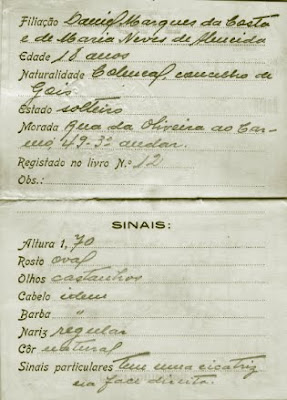 Filiação Daniel Marques da Costa
e de Maria Neves de Almeida
Edade 18 anos
Naturalidade Colmeal, concelho de
Gois
Estado solteiro
Morada Rua da Oliveira ao Car-
mo, 49-3º andar.
Registado no livro N.º 12
Obs.:
SINAIS:
Altura 1, 70
Rosto oval
Olhos castanhos
Cabelo idem
Barba "
Nariz regular
Côr natural
Sinais particulares Tem uma cicatriz
na face direita.